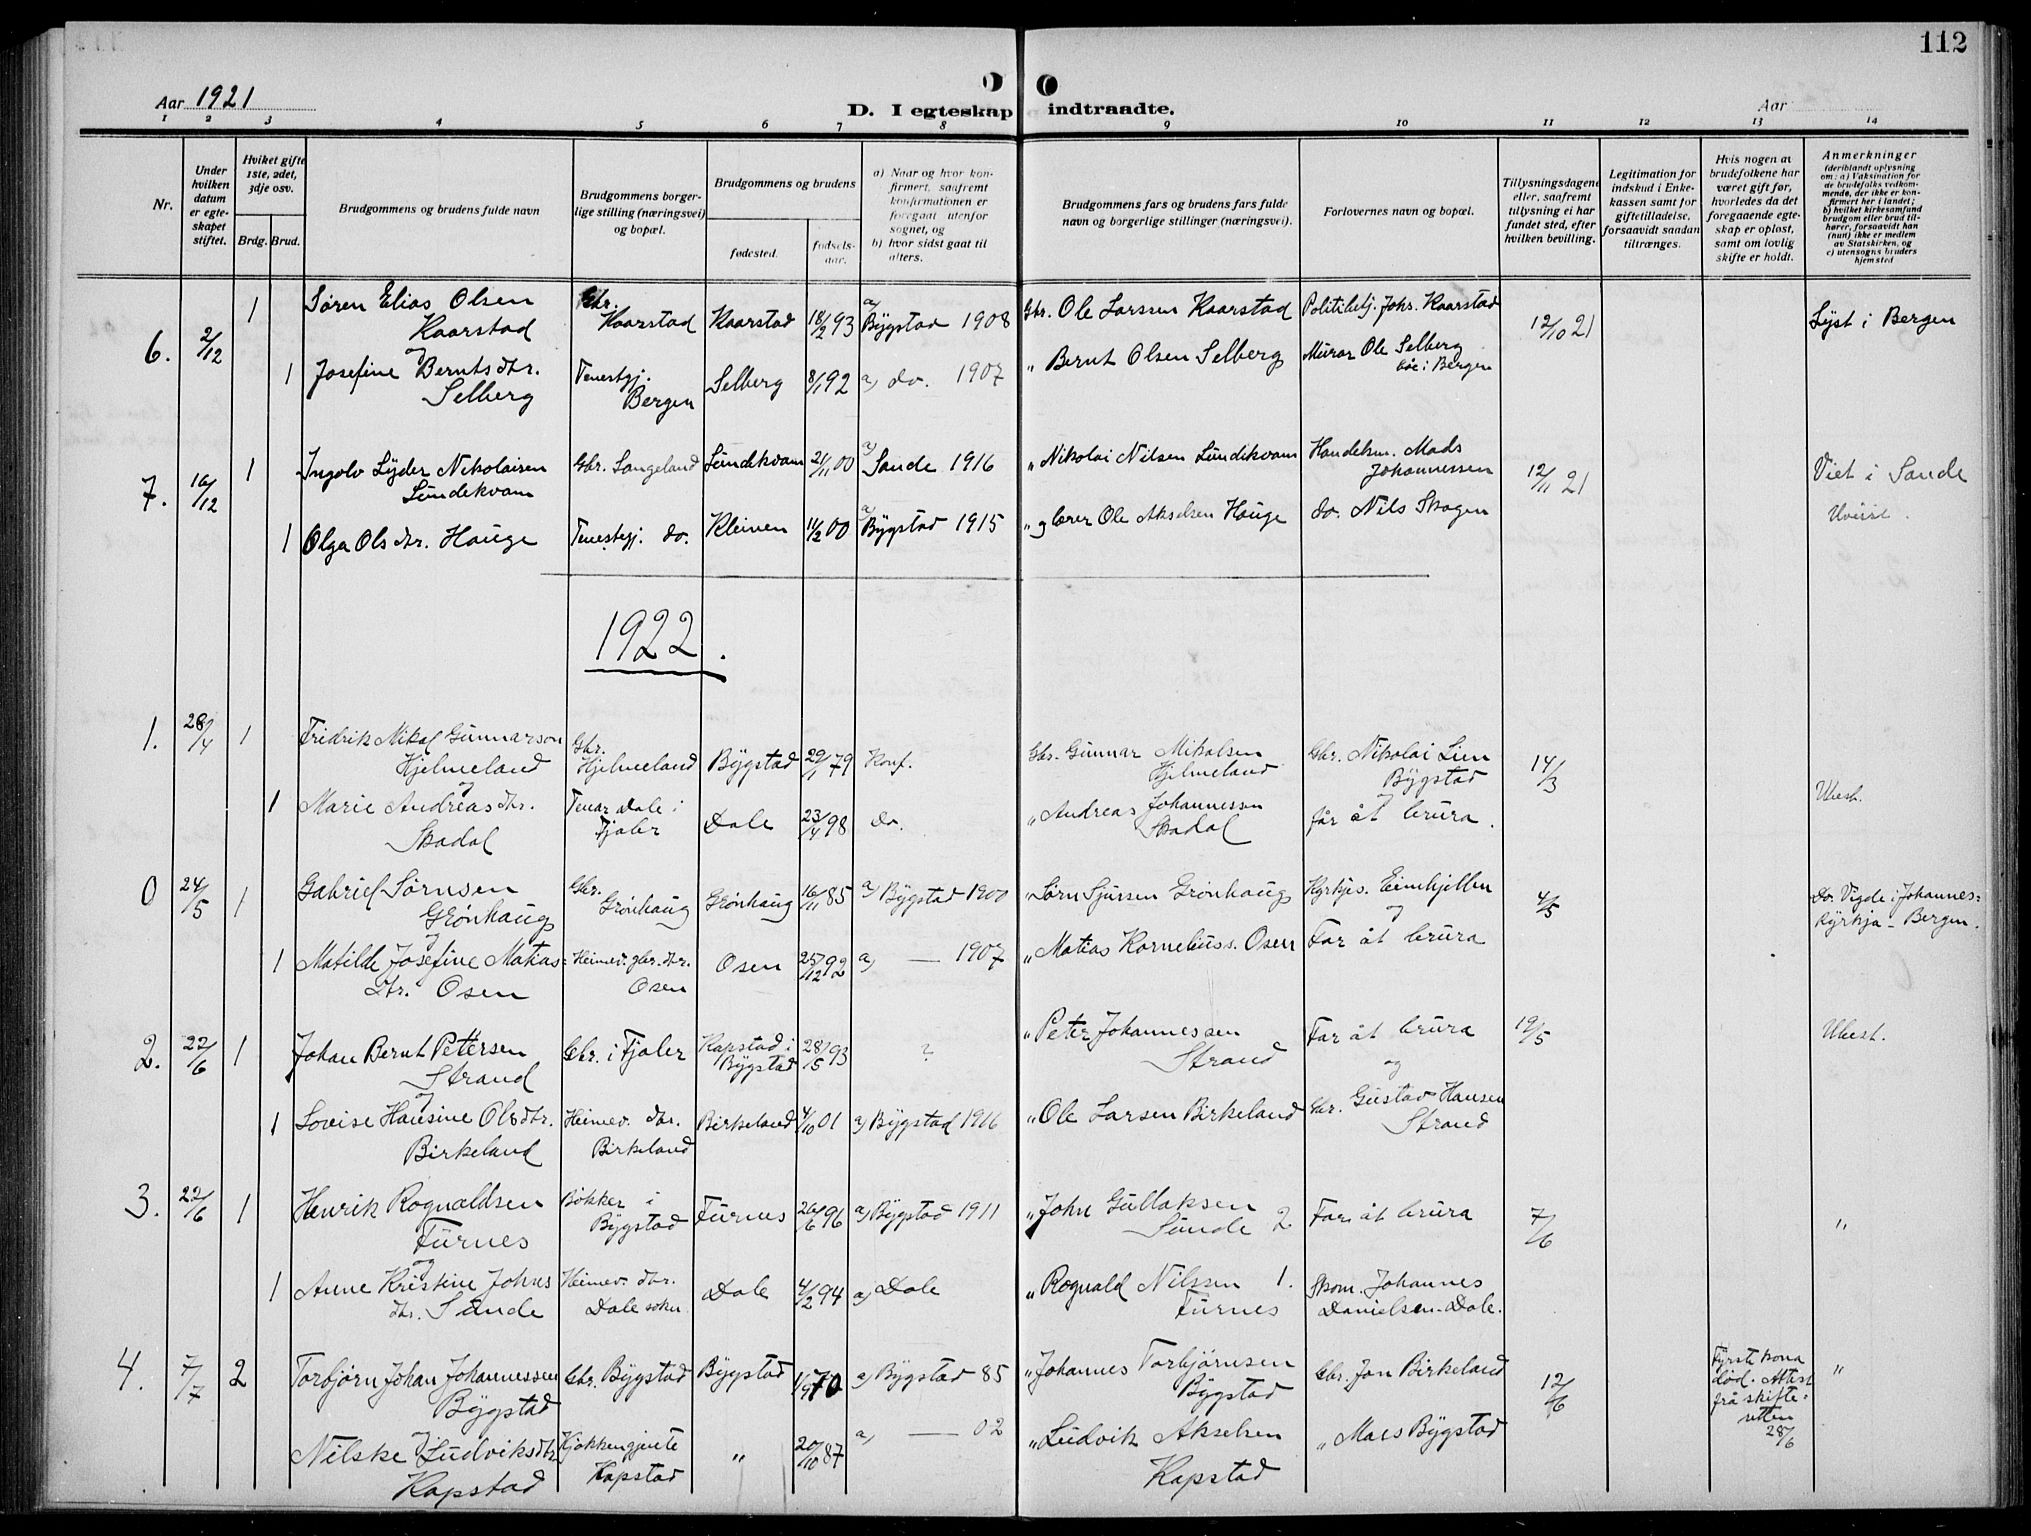 112
Aar 1921
D. I egteskap indtraadte.
Aar
1 2 3 4 5 6 7 8 9 10 11 12 13 14
Nr.
Under hvilken datum er egte-skapet stiftet.
Hvilket gifte 1ste, 2det, 3dje osv.
Brdg. Brud.
Brudgommens og brudens fulde navn
Brudgommens borger-lige stilling (næringsvei) og bopæl.
Brudgommens og brudens
fødested.
fødsels-aar.
a) Naar og hvor kon-firmert, saafremt konfirmationen er foregaat utenfor sognet, og
b) hvor sidst gaat til alters.
Brudgommens fars og brudens fars fulde navn og borgerlige stillinger (næringsvei).
Forlovernes navn og bopæl.
Tillysningsdagene eller, saafremt tillysning ei har fundet sted, efter hvilken bevilling.
Legitimation for indskud i Enke-kassen samt for giftetilladelse, forsaavidt saadan tiltrænges.
Hvis nogen av brudefolkene har været gift før, hvorledes da det foregaaende egte-skap er opløst, samt om lovlig skifte er holdt.
Anmerkninger
(deriblandt oplysning om: a) Vaksination for de brudefolks vedkom-mende, der ikke er kon-firmert her i landet;
b) hvilket kirkesamfund brudgom eller brud til-hører, forsaavidt han (hun) ikke er medlem av Statskirken, og
c) utensogns bruders hjemsted
6. 2/12 1 Søren Elias Olsen Kaarstad Gbr. Kaarstad Kaarstad 18/2 93 a) Bygstad 1908 Gbr. Ole Larssen Kaarstad Politibetj. Johs. Kaarstad 12/10 21 Lyst i Bergen
og
1 Josefine Berntsdtr. Selberg Tenestgj. Bergen Selberg 8/1 92 a) do. 1907 " Bernt Olsen Selberg Murar Ole Selberg båe i Bergen
7. 16/12 1 Ingolv Lyder Nikolaisen Lundekvam Gbr. Langeland Lundekvam 21/11 00 a) Sande 1916 " Nikolai Nilsen Lundekvam Handelsm. Mads Johannessen 12/11 21 Viet i Sande
1 Olga Olsdtr. Hauge Tenestgj. do. Kleiven 11/2 00 a) Bygstad 1915 " Ole Akselsen Hauge do. Nils Skogen
1922.
1. 28/4 1 Fridrik Nikol Gunnarson Hjelmeland Gbr. Hjelmeland Bygstad 29/1 79 Konf. Gbr. Gunnar Mikalsen Hjelmeland Gbr. Nikolai Lien Bygstad 14/3
og
1 Marie Andreasdtr. Skadal Tenar Dale i Fjaler Dale 23/4 98 do. " Andreas Johannessen Skadal far åt brura. Ubest.
0 24/5 1 Gabriel Sørnsen Grønhaug Gbr. Grønhaug Grønhaug 16/11 85 a) Bygstad 1900 " Sørn Sjursen Grønhaug Kyrkjes. Eimhjellen 4/5 Do. Vigde i Johannes-kyrkja - Bergen.
og
1 Matilde Josefine Matias-dtr. Osen Heimev. gbr. dtr. Osen Osen 25/12 92 a) — 1907 " Matias Korneliuss. Osen Far åt brura
2. 22/6 1 Johan Bernt Pettersen Strand Gbr. i Fjaler Kapstad i Bygstad 28/5 93 ? " Peter Johannessen Strand Far åt brura 19/5 Ubest.
og
1 Lovise Hansine Olsdtr. Birkeland Heimev. dtr. Birkeland Birkeland 4/10 01 a) Bygstad 1916 " Ole Larsen Birkeland Gbr. Gustav Hansen Strand
3. 22/6 1 Henrik Rognaldsen Furnes Bøkker i Bygstad Furnes 26/6 96 a) Bygstad 1911 " John Gullaksen Sunde 2 Far åt brura 7/6 "
og
1 Anne Kristine Johns dtr. Sunde Heimev. dtr. Dale sokn Dale 4/2 94 a) Dale " Rognald Nilssen 1. Furnes Skom. Johannes Danielsen - Dale.
4. 7/7 2 Torbjørn Johan Johannessen Bygstad Gbr. Bygstad Bygstad 1/9 70 a) Bygstad 85 " Johannes Torbjørnsen Bygstad Gbr. Jon Birkeland 12/6 Fyrste kona død. Attest frå skifte-retten 28/6 "
og
Nilske Ludviksdtr Kapstad Kjøkkengjente Kapstad " 20/10 87 a) — 02 " Ludvik Akselsen Kapstad " Mads Bygstad